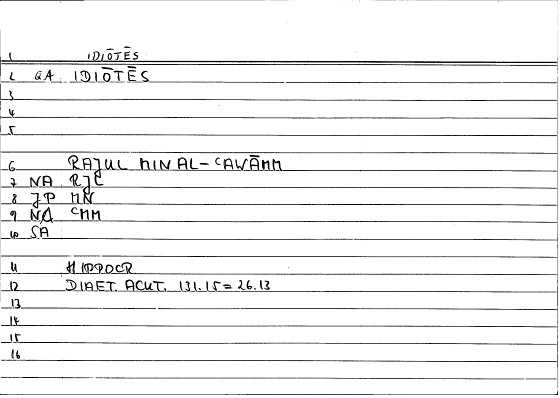 1 IDIŌTĒS
2 GA IDIŌTĒS
3
4
5
6 RAJUL MIN AL-ᶜAWĀMM
7 NA RJL
8 JP MN
9 NA ᶜMM
10 SA
11 HIPPOCR
12 DIAET. ACUT. 131.15 = 26.13
13
14
15
16